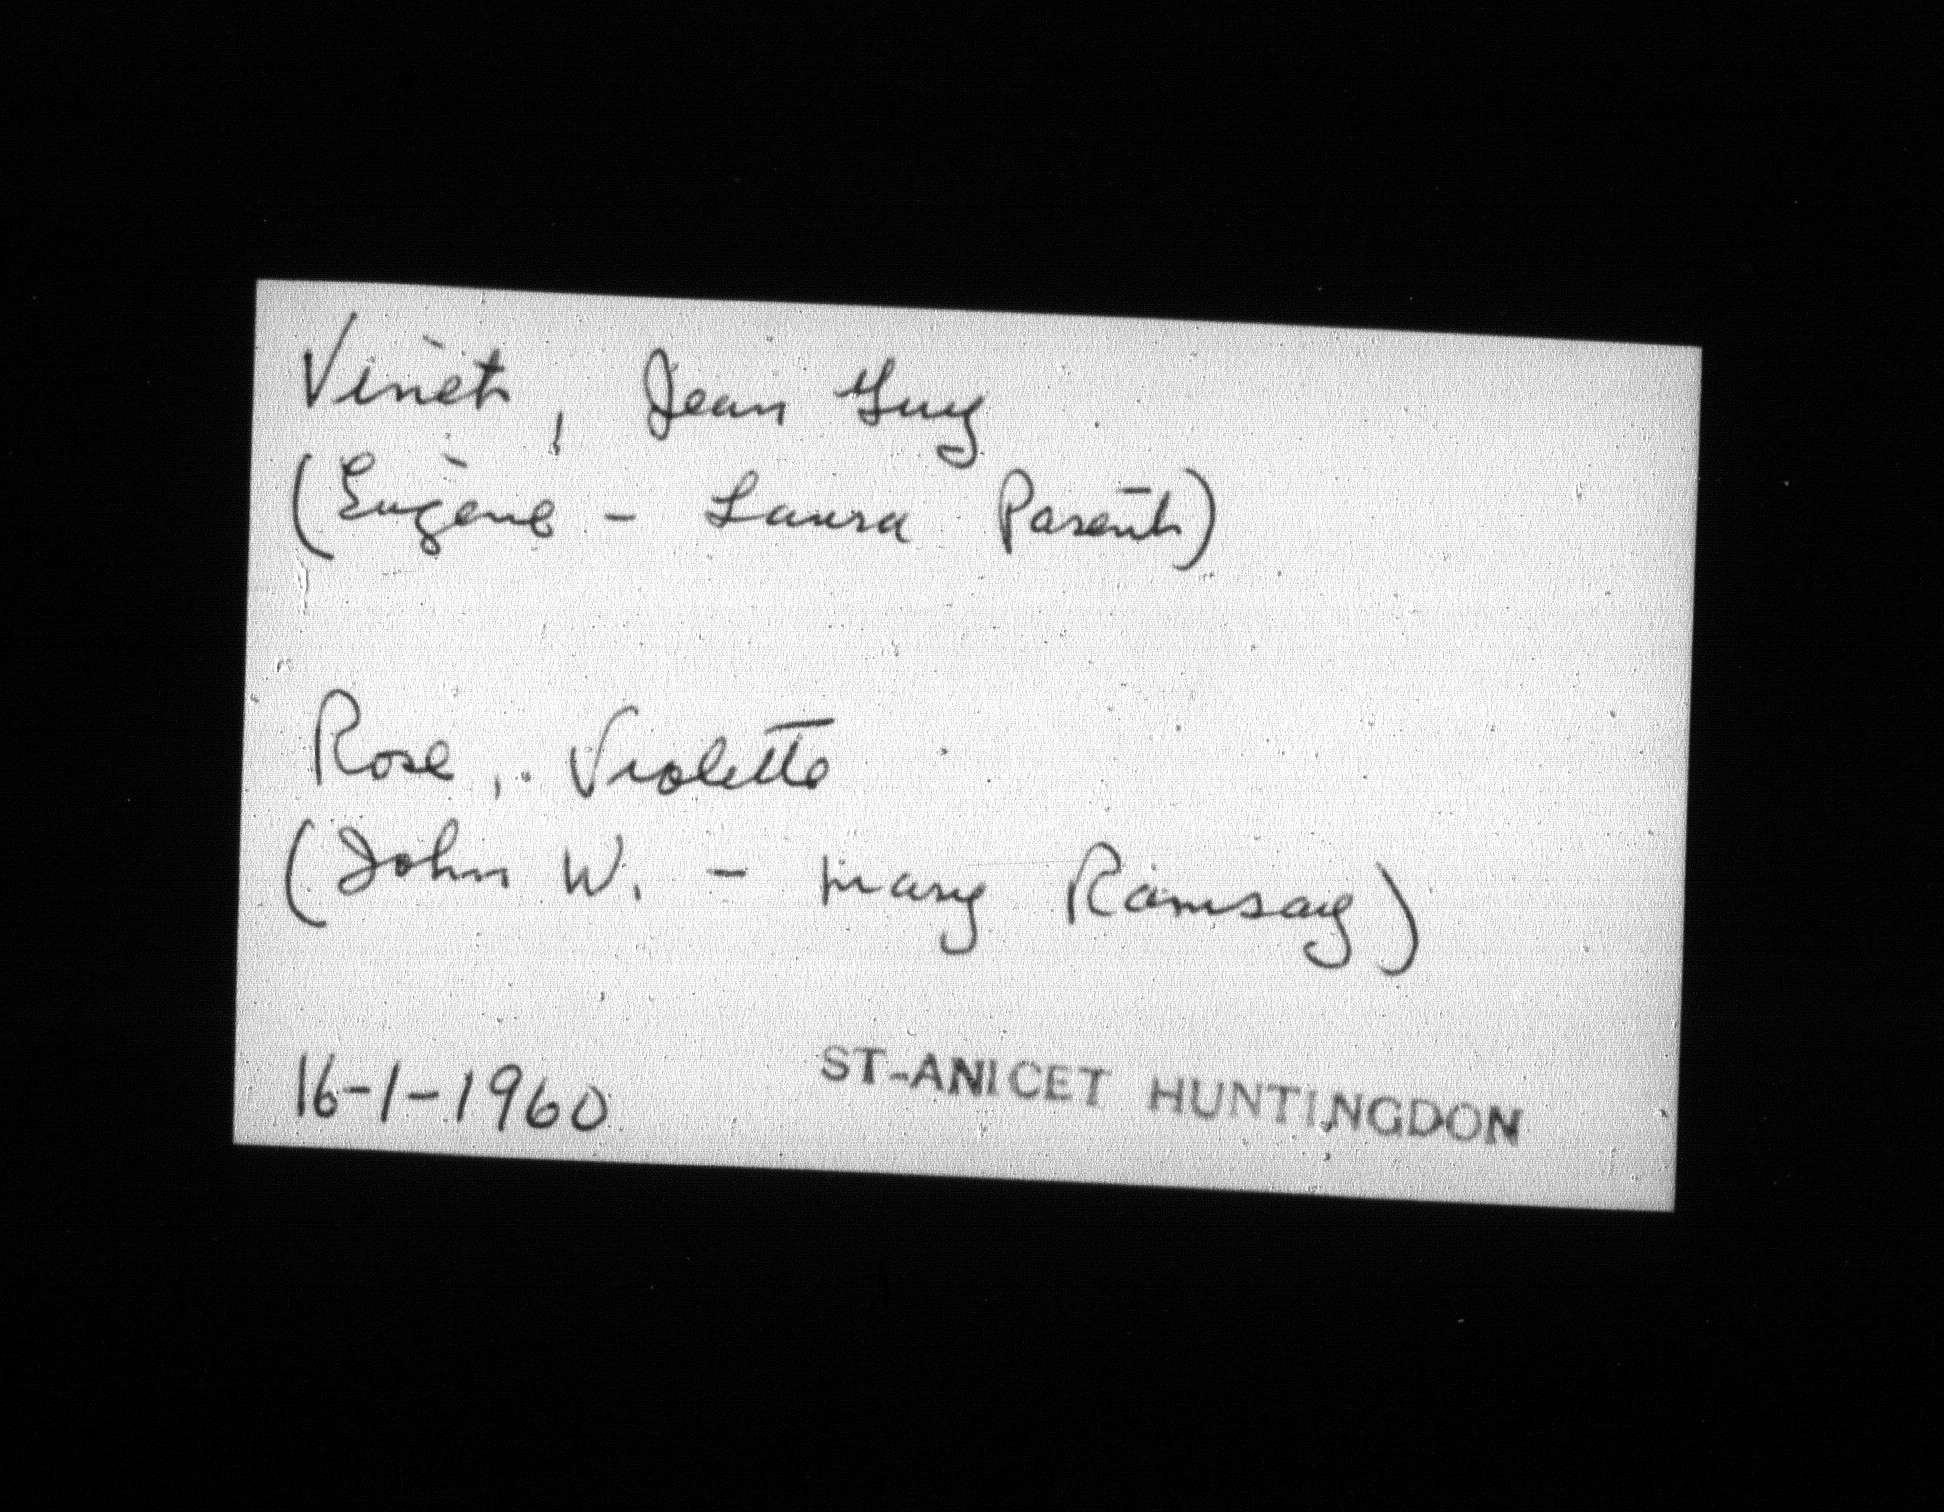 Vinet, Jean Guy
(Eugène - Laura Parent)
Rose, Violette
(John W. - Mary Ramsay)
16-1-1960 ST-ANICET HUNTINGDON